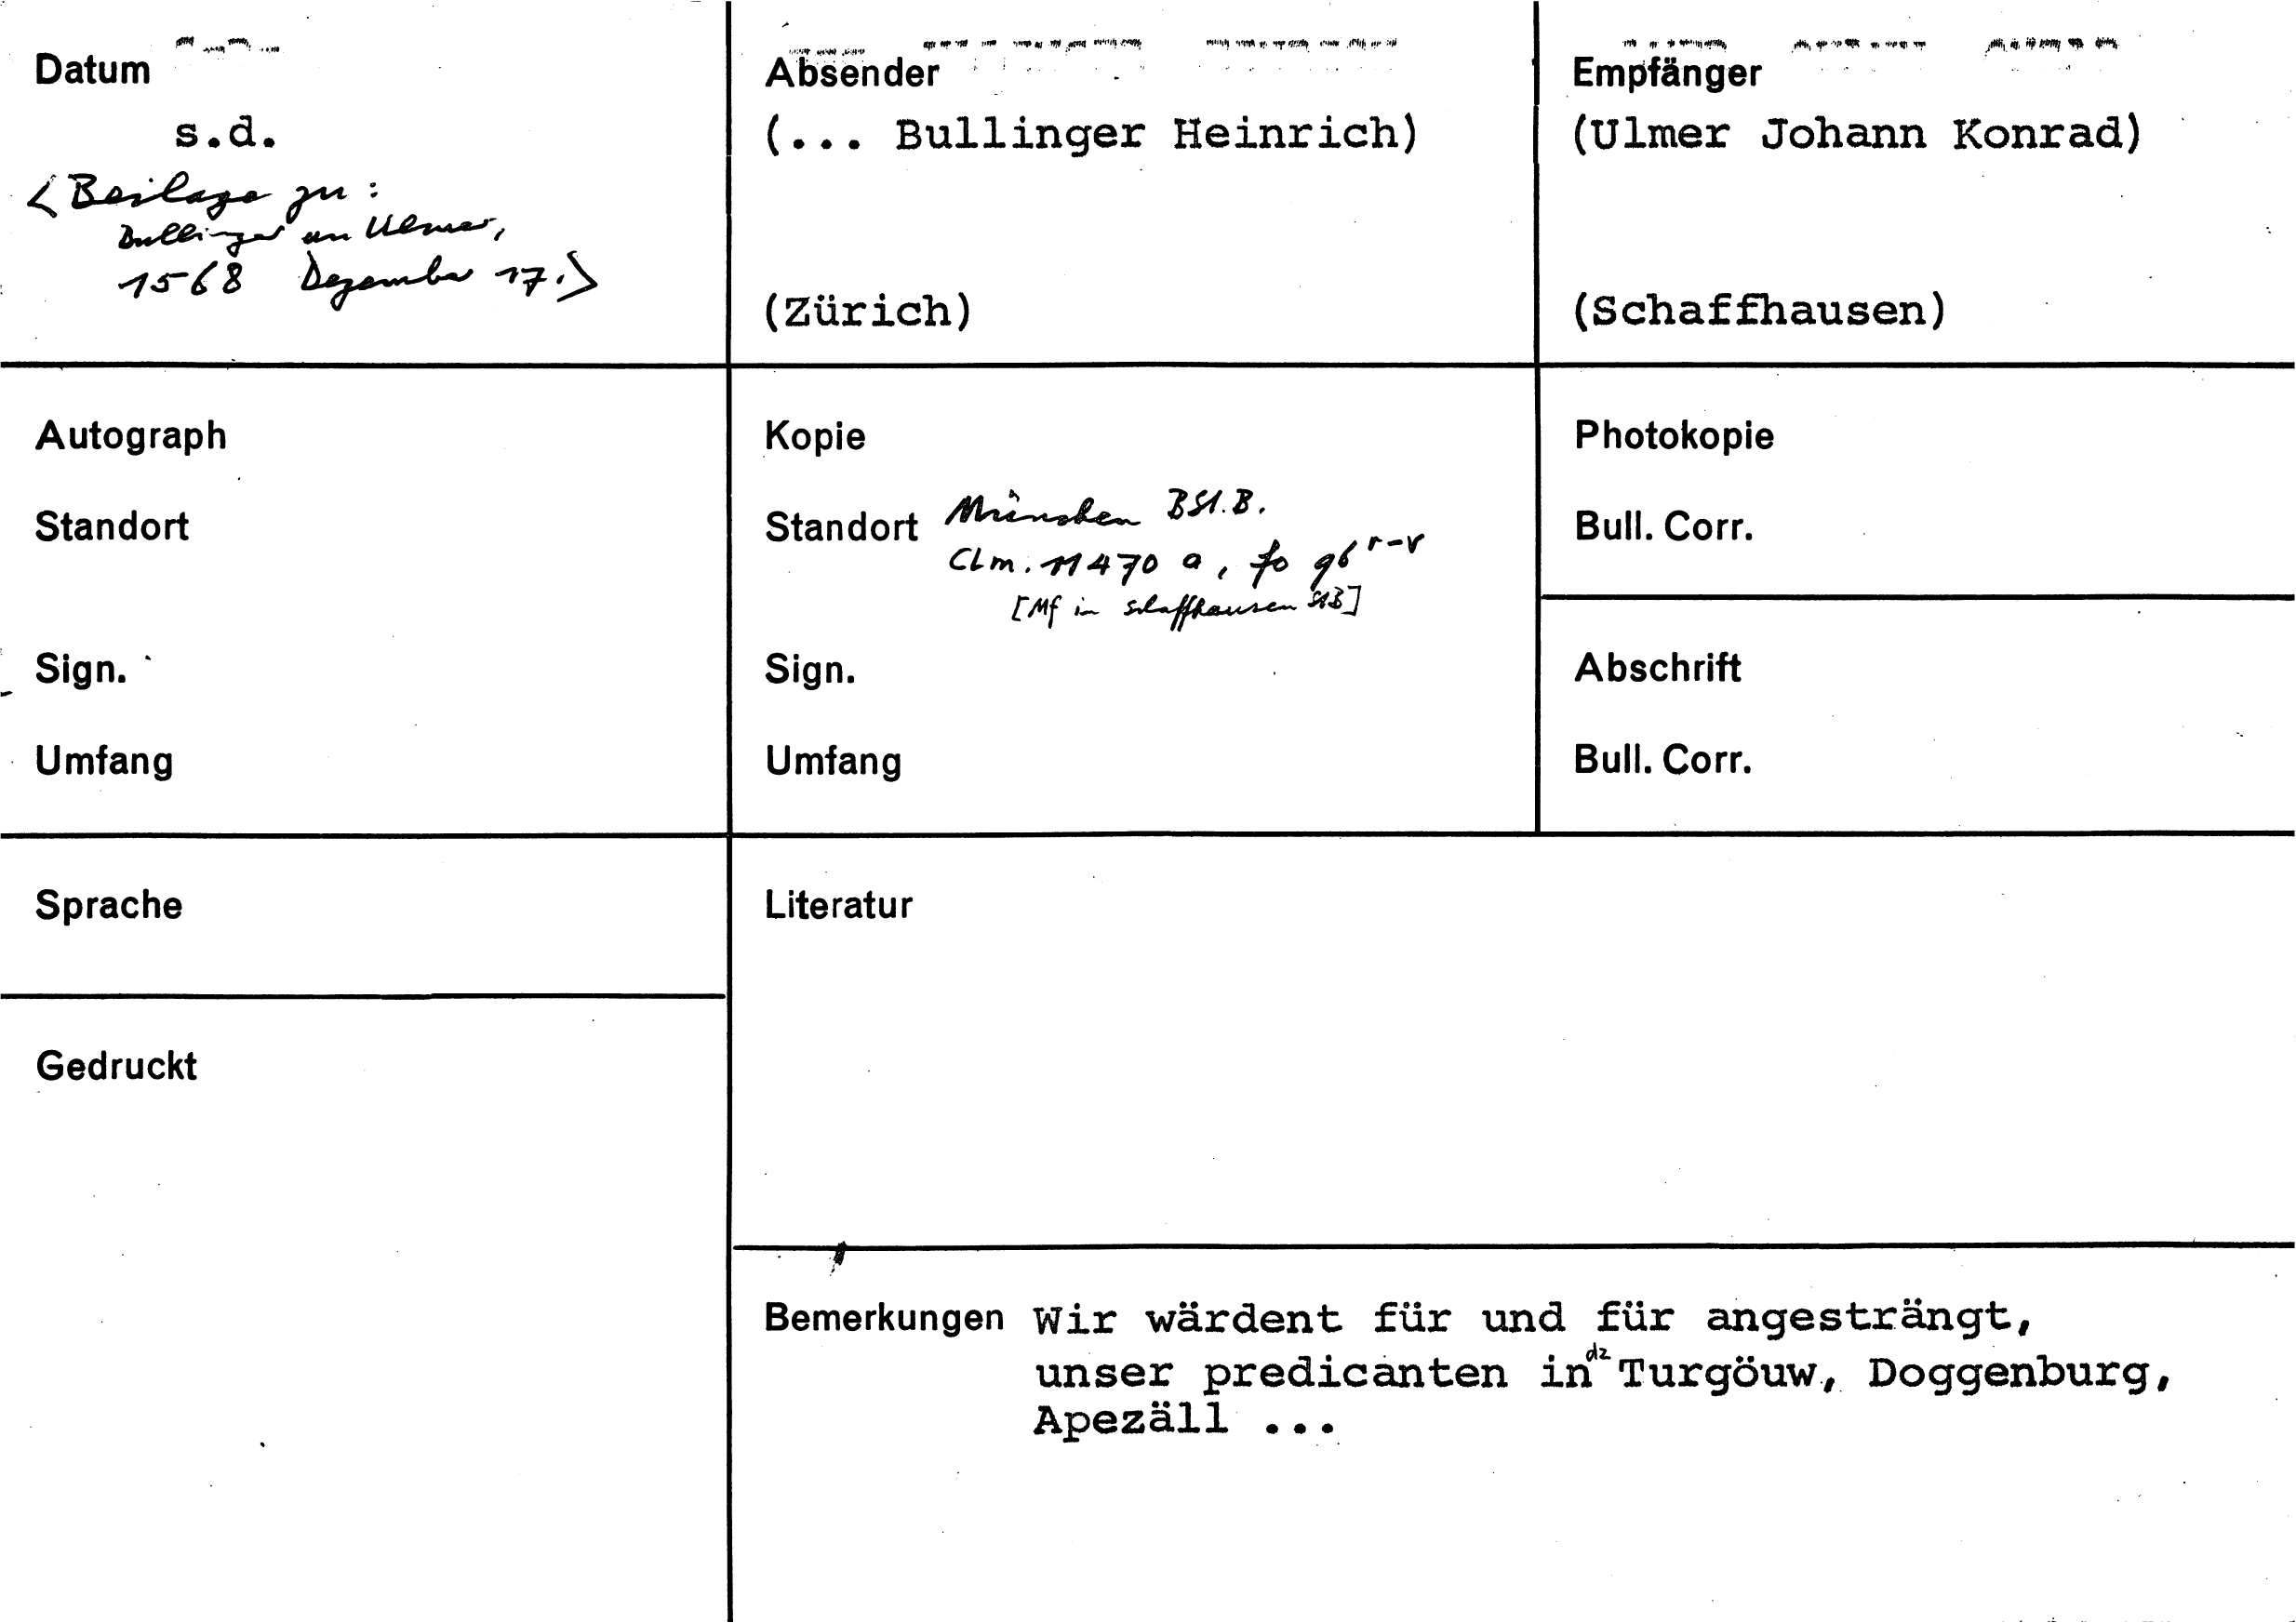 Datum
s.d.
<Beilage zu:
Bullinger an Ulmer,
1568 Dezember 17.>
Absender
(... Bullinger Heinrich)
(Zürich)
Empfänger
(Ulmer Johann Konrad)
(Schaffhausen)
Autograph
Standort
Sign.
Umfang
Kopie
Standort München BSt.B.
Clm. 11470 a, fo 96 r-v
[Mf in Schaffhausen StB]
Sign.
Umfang
Photokopie
Bull. Corr.
Abschrift
Bull. Corr.
Sprache
Gedruckt
Literatur
Bemerkungen Wir wärdent für und für angesträngt,
unser predicanten in dz Turgöuw, Doggenburg,
Apezäll ...